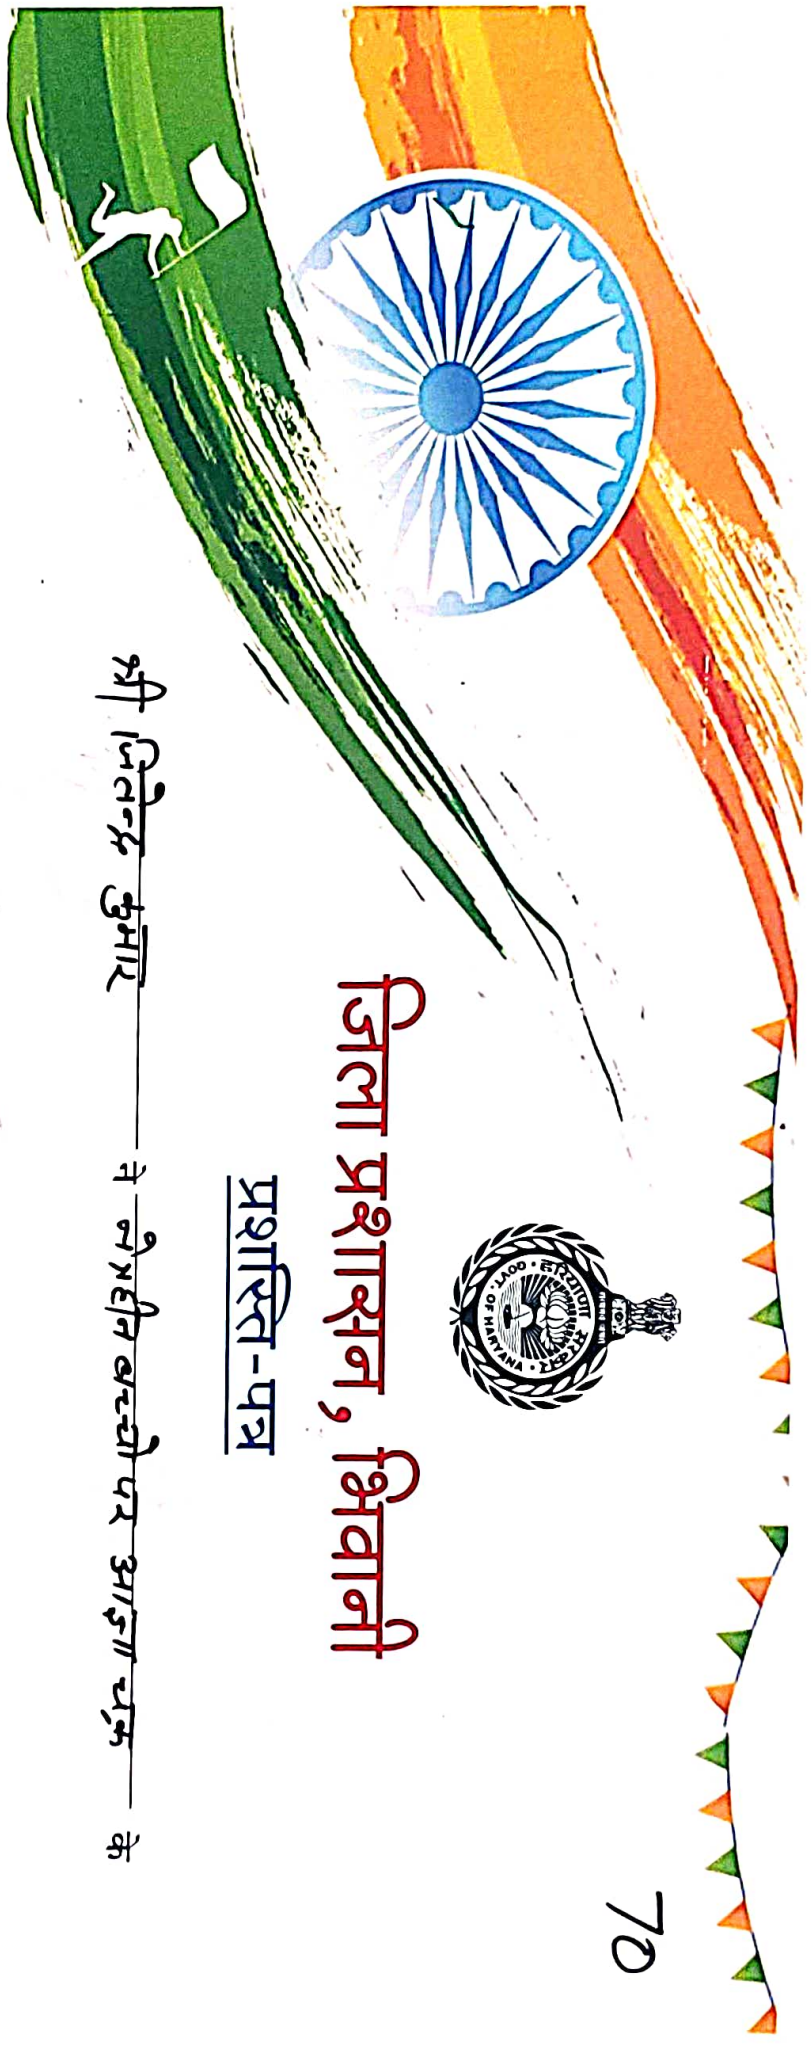 70
हरियाणा सरकार
GOVT. OF HARYANA
जिला प्रशासन, भिवानी
प्रशस्ति-पत्र
श्री जितेन्द्र कुमार ने नेत्रहीन बच्चों पर आज्ञा चक्र के